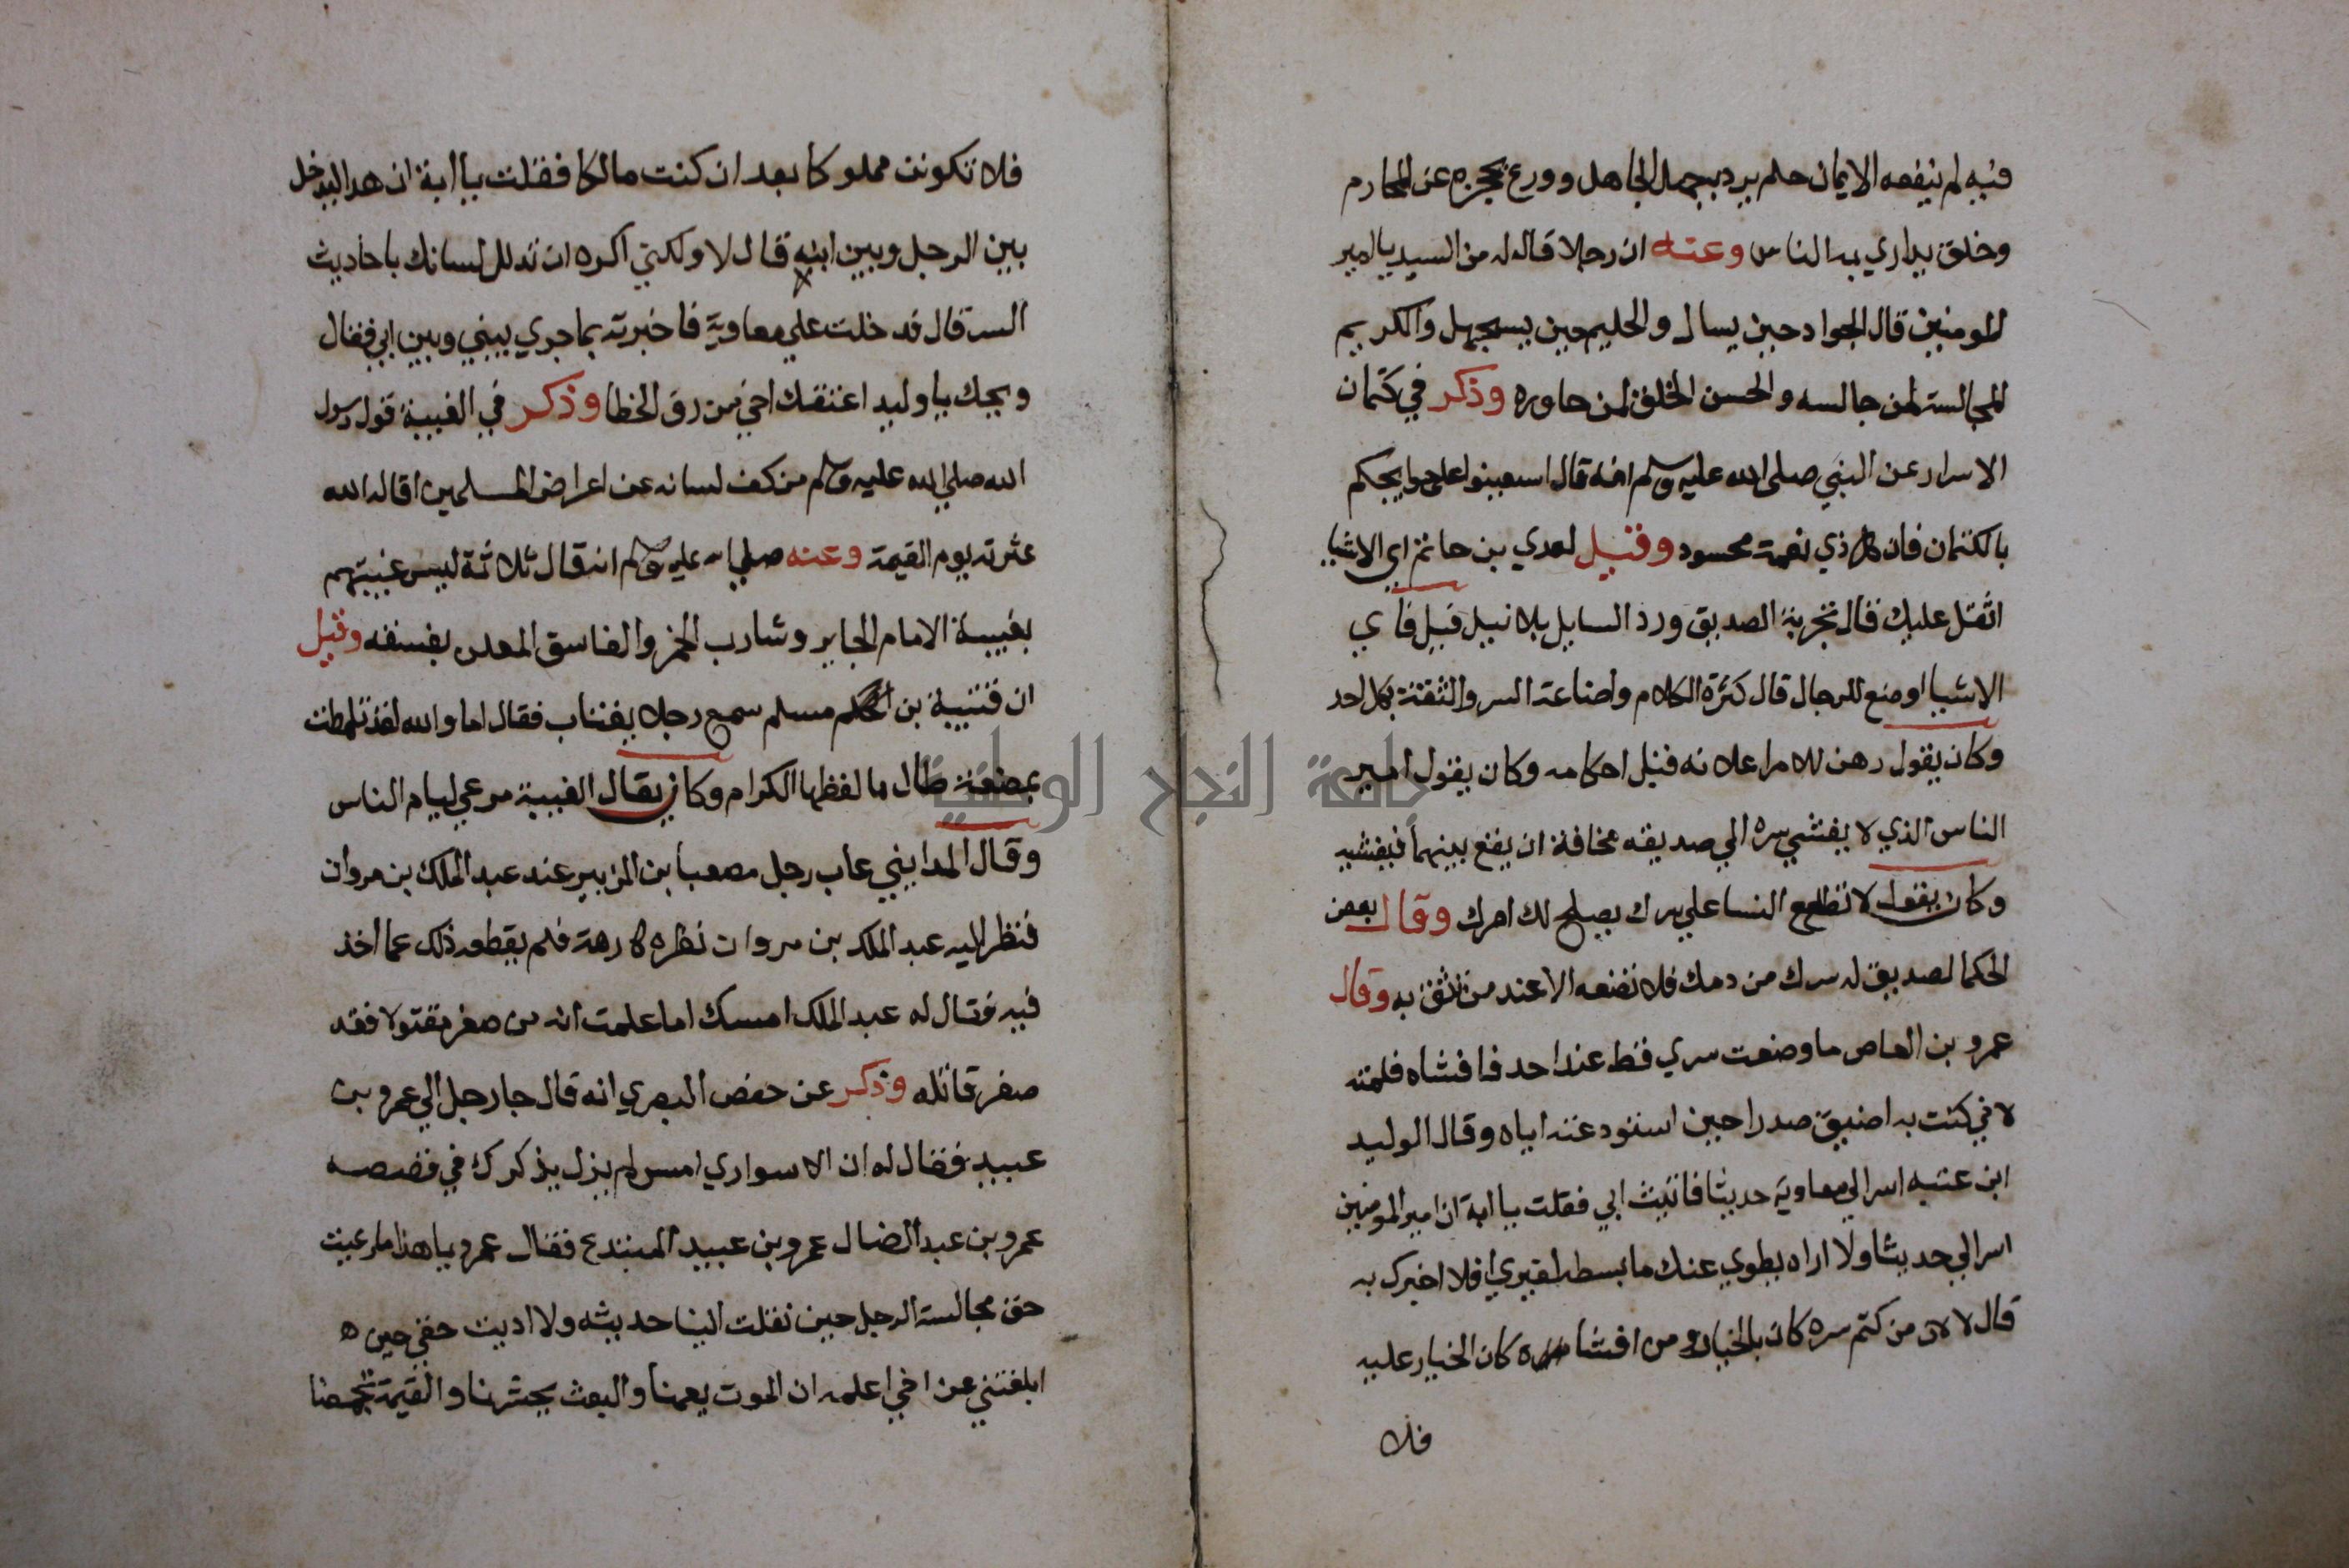 فيه لم ينفعه الايمان حلم يرد به جهل الجاهل وورع يحجزه عن المحارم
وخلق يداري به الناس وعنه ان رجلا قال له من السيد يا امير
المومنين قال الجواد حين يسال والحليم حين يستجهل والكريم
المجالسة لمن جالسه والحسن الخلق لمن حاوره وذكر في كتمان
الاسرار عن النبي صلى الله عليه وسلم انه قال استعينوا على حوايجكم
بالكتمان فان كل ذي نعمة محسود وقيل لعدي بن حاتم اي الاشيا
اثقل عليك قال تجربة الصديق ورد السايل بلا نيل قيل فاي
الاشيا اوضع للرجال قال كثرة الكلام واضاعة السر والثقة بكل احد
وكان يقول رهن للامر اعلانه قبل احكامه وكان يقول
الناس الذي لا يفشي سره الي صديقه مخافة ان يقع بينهما فيفشيه
وكان يقول لا تطلع النسا علي سرك يصلح لك امرك وقال بعض
الحكما لصديق له سرك من دمك فلا تضعه الا عند من تثق به وقال
عمرو بن العاص ما وضعت سري قط عند احد فافشاه فلمته
لاني كنت به اضيق صدرا حين استودعته اياه وقال الوليد
ابن عتبه اسر الي معاوية حديثا فاتيت ابي فقلت يا ابة ان امير المومنين
اسر الي حديثا ولا اراه يطوي عنك ما بسطه لغيرك افلا اخبرك به
قال لا لان من كتم سره كان بالخيار ومن افشا سره كان الخيار عليه
فلا
فلا تكونن مملوكا بعد ان كنت مالكا فقلت يا ابة ان هذا ليدخل
بين الرجل وبين ابنه قال لا ولكني اكره ان تذلل لسانك باحاديث
السر قال فدخلت علي معاوية فاخبرته بما جري بيني وبين ابي فقال
ويحك يا وليد اعتقك اخي من رق الخطا وذكر في الغيبة قول رسول
الله صلي الله عليه وسلم من كف لسانه عن اعراض المسلمين اقاله الله
عثرته يوم القيمة وعنه صلي الله عليه وسلم انه قال ثلاثة ليس غيبتهم
بغيبة الامام الجاير وشارب الخمز والفاسق المعلن بفسقه وقيل
ان قتيبة بن مسلم سمع رجلا يغتاب فقال اما والله لقد تلمظت
بمضغة طال ما لفظها الكرام وكان يقال الغيبة مرعي ليام الناس
وقال المدايني عاب رجل مصعبا بن الزبير عند عبد الملك بن مروان
فنظر اليه عبد الملك بن مروان نظره كارهة فلم يقطعه ذلك عما اخذ
فيه فقال له عبد الملك امسك اما علمت انه من صغر مقتولا فقد
صغر قاتله وذكر عن حفص البصري انه قال جا رجل الي عمرو بن
عبيد فقال له ان الاسواري امس لم يزل يذكرك في قصصه
عمرو بن عبد الضال عمرو بن عبيد المبتدع فقال عمرو يا هذا ما رعيت
حق مجالسة الرجل حين نقلت الينا حديثه ولا اديت حقي حين
ابلغتني عن اخي اعلمه ان الموت يعمنا والبعث يحشرنا والقيمة تجمعنا